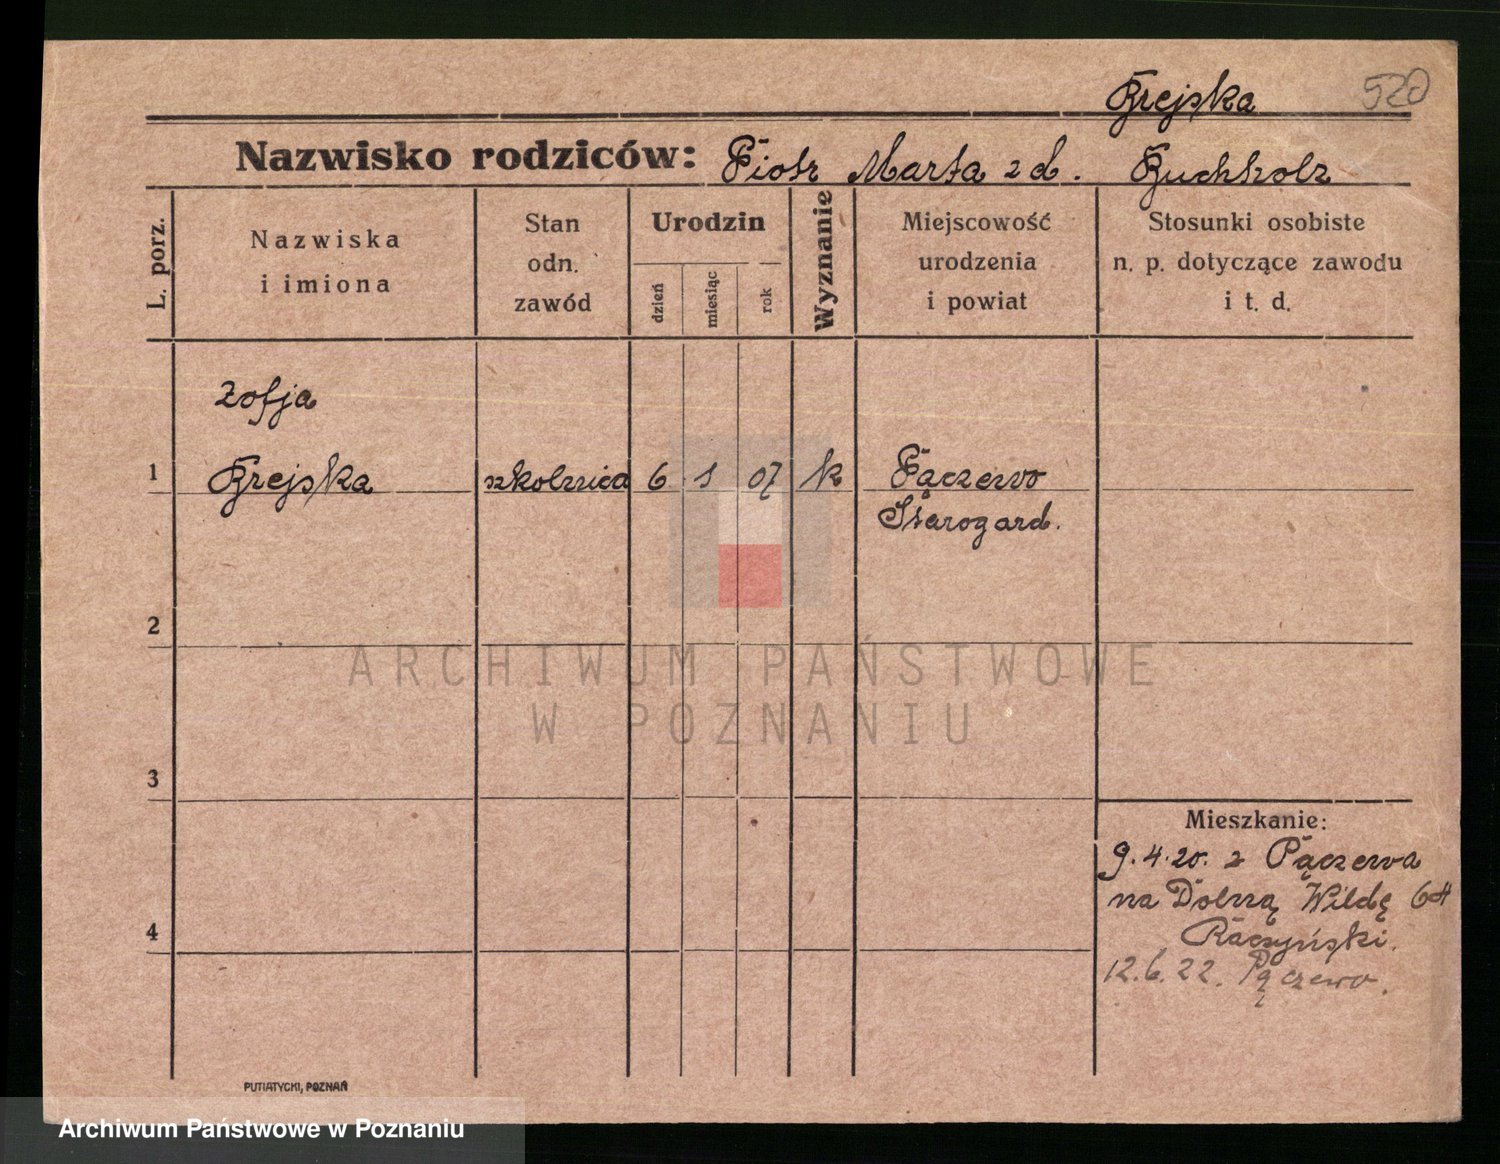 Brejska 520
Nazwisko rodziców: Piotr Marta z d. Buchholz
L. porz.
Nazwiska
i imiona
Stan
odn.
zawód
Urodzin
dzień
miesiąc
rok
Wyznanie
Miejscowość
urodzenia
i powiat
Stosunki osobiste
n. p. dotyczące zawodu
i t. d.
Zofja
1 Brejska szkolnica 6 1 07 k Pączewo
Starogard.
2
ARCHIWUM PAŃSTWOWE
W POZNANIU
3
Mieszkanie:
9.4.20. z Pączewa
na Dolną Wildę 64
4 Raczyński.
12.6.22. Pączewo.
PUTIATYCKI, POZNAŃ
Archiwum Państwowe w Poznaniu